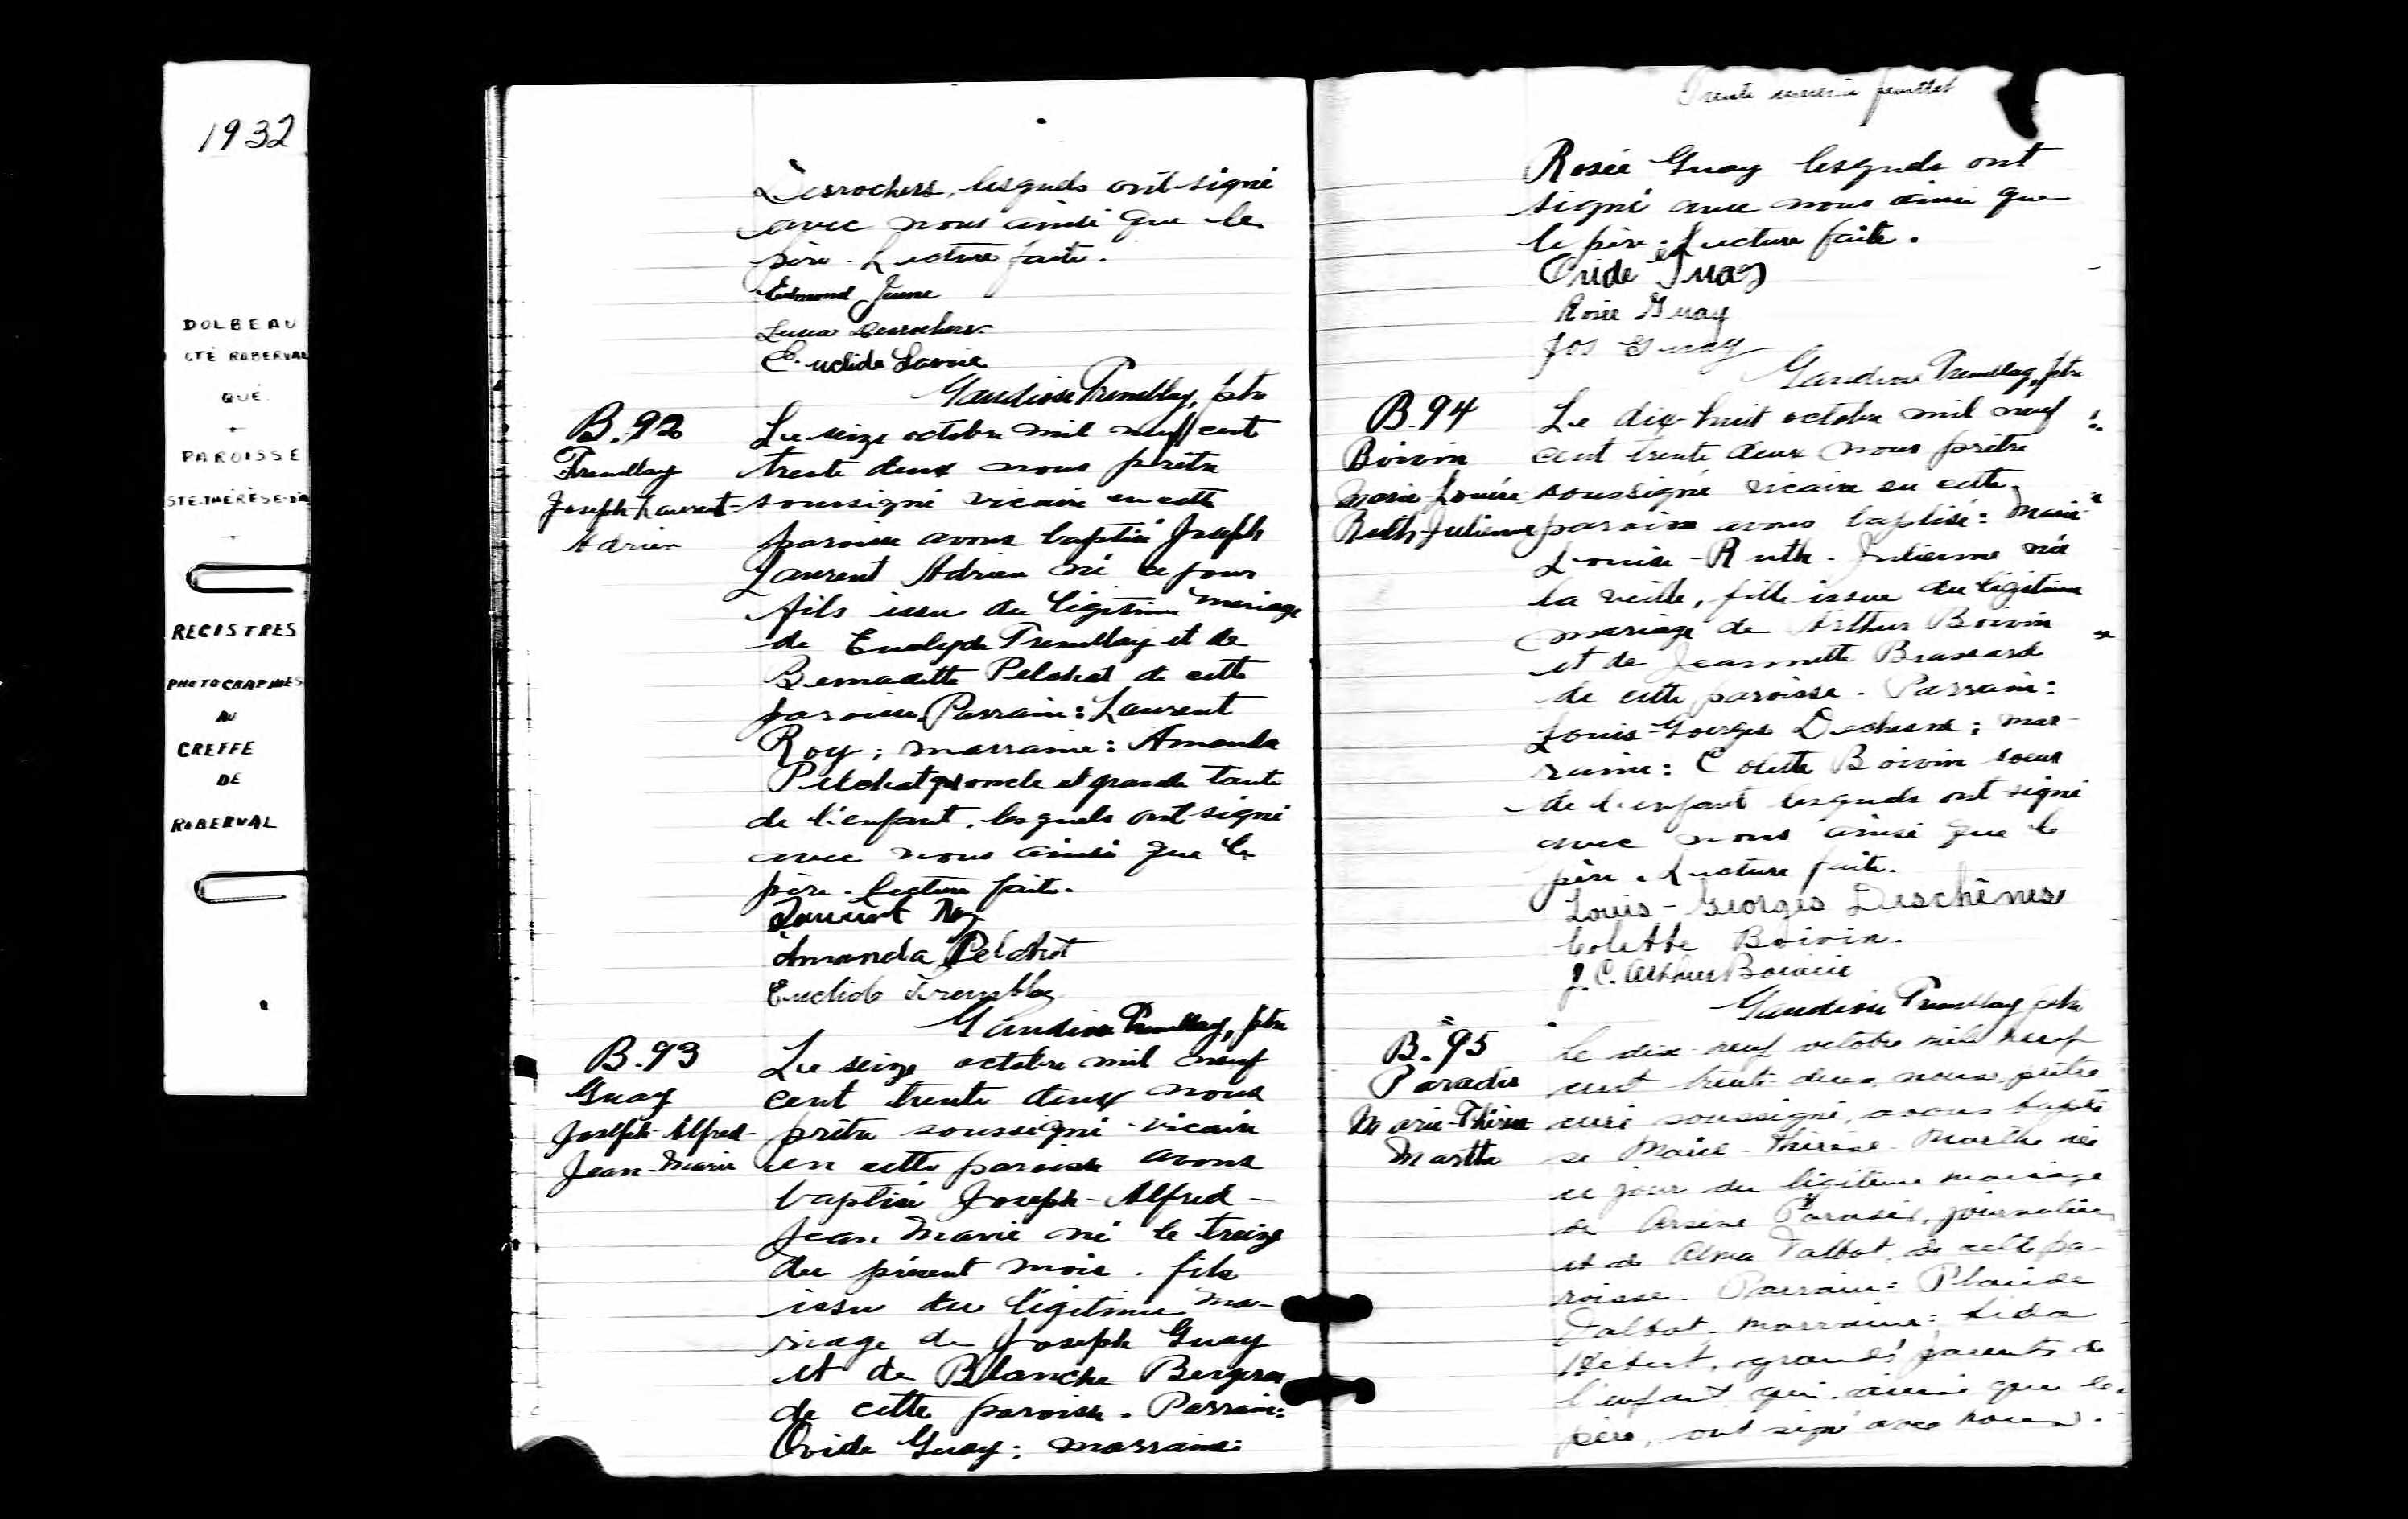 1932
DOLBEAU
CTÉ ROBERVAL
QUÉ.
-
PAROISSE
STE-THÉRÈSE-
REGISTRES
PHOTOGRAPHIÉS
AU
GREFFE
DE
ROBERVAL
Desrochers, lesquels ont signé
avec nous ainsi que le
père. Lecture faite.
Edmond
Desrochers
Euclide Lavoie
Gaudiose Tremblay, ptre
B.92
Tremblay
Joseph-Laurent-
Adrien
Le seize octobre mil neuf cent
trente deux nous prêtre
soussigné vicaire en cette
paroisse avons baptisé Joseph
Laurent Adrien né ce jour
fils issu du légitime mariage
de Tremblay et de
Bernadette Pelchat de cette
paroisse. Parrain: Laurent
Roy; marraine: Amanda
Pelchat oncle et grande tante
de l'enfant, lesquels ont signé
avec nous ainsi que le
père. Lecture faite.
Laurent Roy
Amanda Pelchat
Euclide Tremblay
Gaudiose Tremblay, ptre
B.93
Guay
Joseph-Alfred-
Jean-Marie
Le seize octobre mil neuf
cent trente deux nous
prêtre soussigné vicaire
en cette paroisse avons
baptisé Joseph-Alfred-
Jean Marie né le treize
du présent mois. fils
issu du légitime ma-
riage de Joseph Guay
et de Blanche Bergeron
de cette paroisse. Parrain:
Ovide Guay; marraine:
Trente feuillet
Rosée Guay lesquels ont
signé avec nous ainsi que
le père. Lecture faite.
Ovide Guay
Rosée Guay
Jos Guay
Gaudiose Tremblay, ptre
B.94
Boivin
Marie-Louise-
Ruth-Julienne
Le dix-huit octobre mil neuf
cent trente deux nous prêtre
soussigné vicaire en cette
paroisse avons baptisé: Marie
Louise-Ruth-Julienne née
la veille, fille issue du légitime
mariage de Arthur Boivin
et de Jeannette Brassard
de cette paroisse. Parrain:
Louis-Georges Dechesne; mar-
raine: Colette Boivin soeur
de l'enfant lesquels ont signé
avec nous ainsi que le
père. Lecture faite.
Louis-Georges Deschênes
Colette Boivin.
J. C. Arthur Boivin
Gaudiose Tremblay ptre
B.95
Paradis
Marie-Thérèse
Marthe
Le dix-neuf octobre mil neuf
cent trente-deux, nous, prêtre
curé soussigné, avons bapti
sé Marie-Thérèse-Marthe née
ce jour du légitime mariage
de Arsène Paradis, journalier,
et de Alma Talbot, de cette pa-
roisse. Parrain: Placide
Talbot. marraine: Lida
Hébert, grands parents de
l'enfant qui, ainsi que le
père, ont signé avec nous.